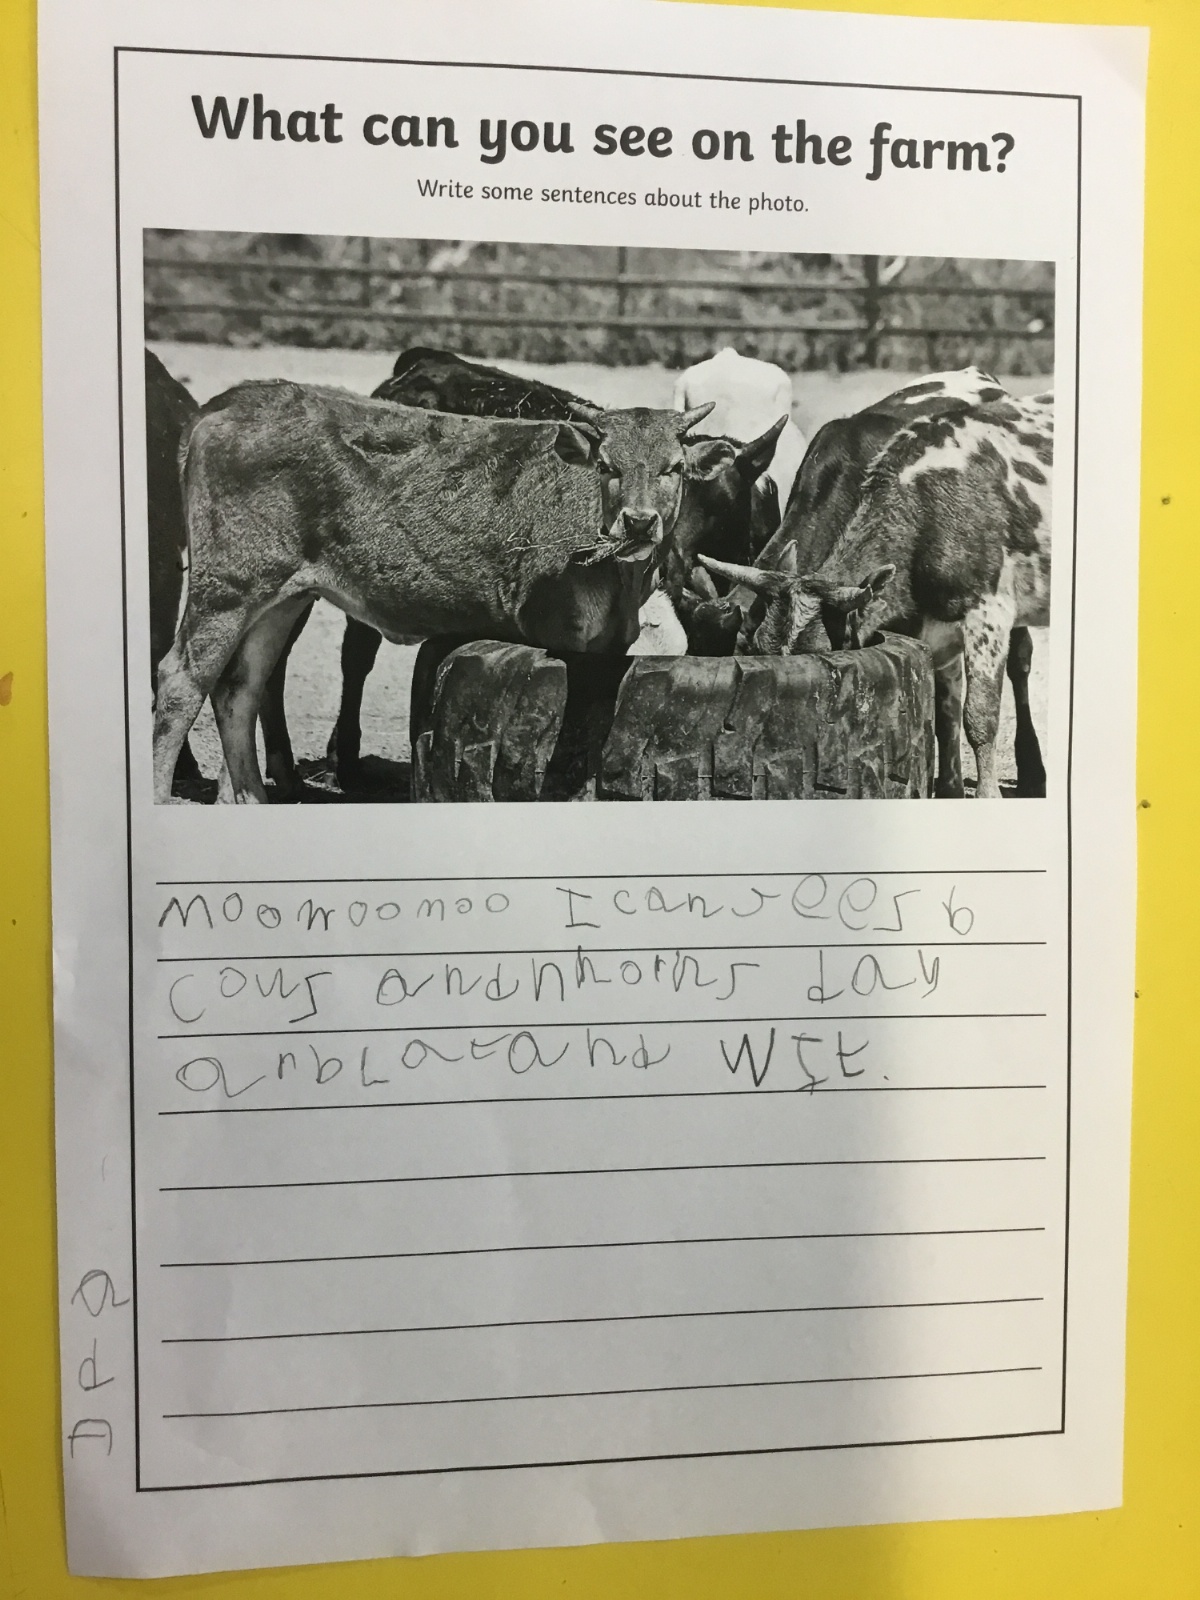 What can you see on the farm?
Write some sentences about the photo.
moomoomoo I can sees 6
cows andhhorns day
arblacand wit.